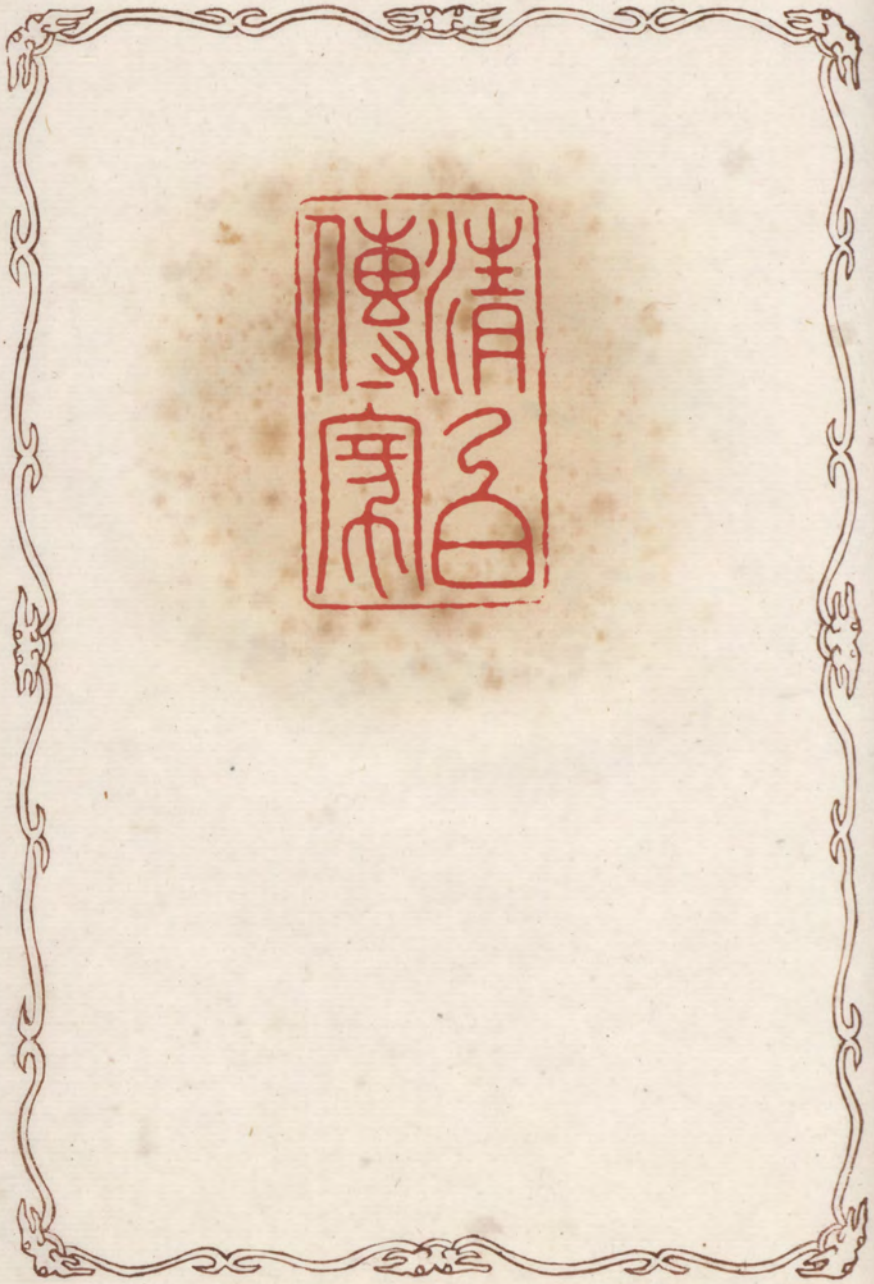 清白
傳家